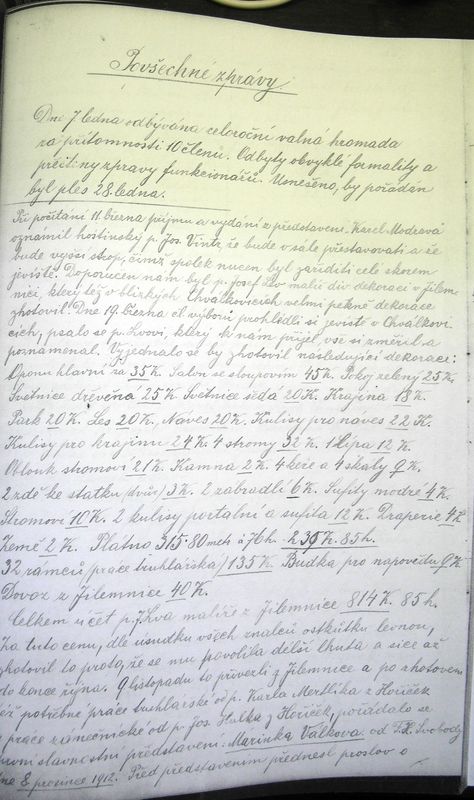 Povšechné zprávy.
Dne 7 ledna odbývána celoroční valná hromada
za přítomnosti 10 členů. Odbyty obvyklé formality a
přečtiny zprávy funkcionářů. Usneseno, by pořádán
byl ples 28. ledna.
Při počítání 11. března příjmu a vydání z představení Karel Modrová
oznámil hostinský p. Jos. Vintr, že bude v sále přestavovati a že
bude vyšší strop, čímž spolek nucen byl zaříditi celé skorem
jeviště. Doporučen nám byl p. Josef Lev malíř div. dekorací v Jilem-
nici, který též v blízkých Chvalkovicích velmi pěkné dekorace
zhotovil. Dne 19. března čl. výboru prohlédli si jeviště v Chvalkovi-
cích, psalo se p. Lvovi, který k nám přijel, vše si změřil a
poznamenal. Vyjednalo se by zhotovil následující dekorace:
Oponu hlavní za 35 K. Salon se sloupovím 45 K. Pokoj zelený 25 K.
Světnice dřevěná 25 K. Světnice šedá 20 K. Krajina 18 K.
Park 20 K. Les 20 K, Náves 20 K. Kulisy pro náves 22 K.
Kulisy pro krajinu 24 K. 4 stromy 32 K. 1 lípa 12 K.
Oblouk stromoví 21 K. Kamna 2 K. 4 keře a 4 skály 9 K.
2 zdě ke statku (dvůr) 3 K. 2 zábradlí 6 K. Sufity modré 4 K.
Stromoví 10 K. 2 kulisy portální a sufita 12 K. Draperie 4 K.
Země 2 K. Plátno 315·80 mtr à 76 h. - 239 K. 85 h.
32 rámců (práce truhlářská) 135 K. Budka pro nápovědu 9 K.
Dovoz z Jilemnice 40 K.
Celkem účet p. J. Lva malíře z Jilemnice 814 K. 85 h.
Za tuto cenu, dle úsudku všech znalců ostkátku levnou,
zhotovil to proto, že se mu povolila delší lhůta a sice až
do konce října. 9 listopadu to přivezli z Jilemnice a po zhotovení
též potřebné práce truhlářské od p. Karla Mertlíka z Hořiček
a práce zámečnické od p. Jos. Hulka z Hořiček, pořádalo se
první slavnostní představení „Marinka Válkova“ od F. X. Svobody
dne 8. prosince 1912. Před představením přednesl proslov o